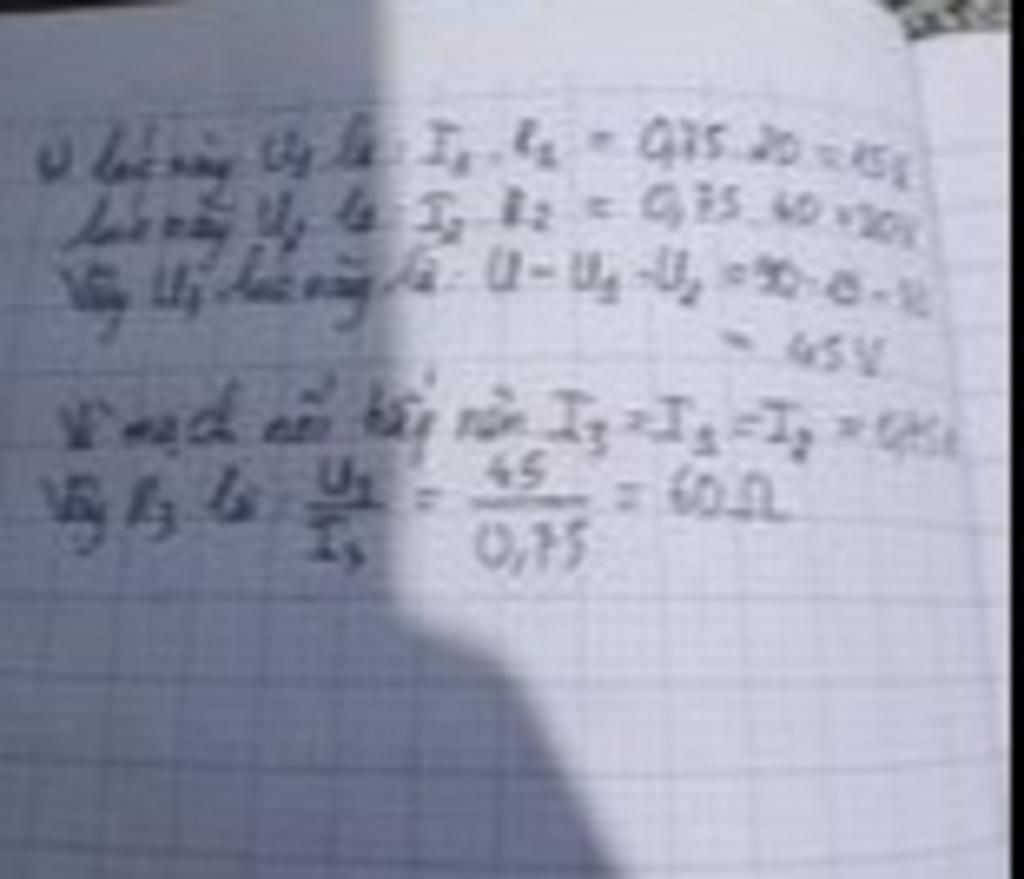 U lúc này U₁ là: I₁ . R₁ = 0,75 . 20 = 15V
lúc này U₂ là: I₂ . R₂ = 0,75 . 40 = 30V
Vậy U₃ lúc này là: U - U₁ - U₂ = 90 - 15 -
= 45V
Vì mạch nối tiếp nên I₃ = I₁ = I₂ = 0,75A
Vậy R₃ là: U₃/I₃ = 45/0,75 = 60Ω